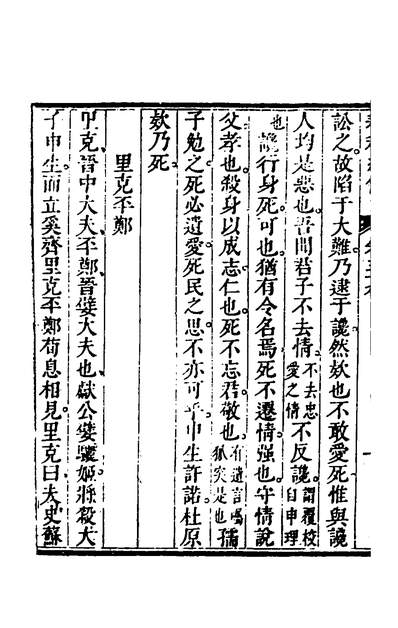 訟之故陷于大難乃逮于讒然欵也不敢愛死惟與讒
人均是惡也吾聞君子不去情不去忠愛之情不反讒謂覆校自申理
也讒行身死可也猶有令名焉死不遷情彊也守情說
父孝也殺身以成志仁也死不忘君敬也有遺言喝狐突是也孺
子勉之死必遺愛死民之思不亦可乎申生許諾杜原
欵乃死
里克丕鄭
里克晉中大夫丕鄭晉嬖大夫也獻公嬖驪姬將殺大
子申生而立奚齊里克丕鄭荀息相見里克曰夫史蘇